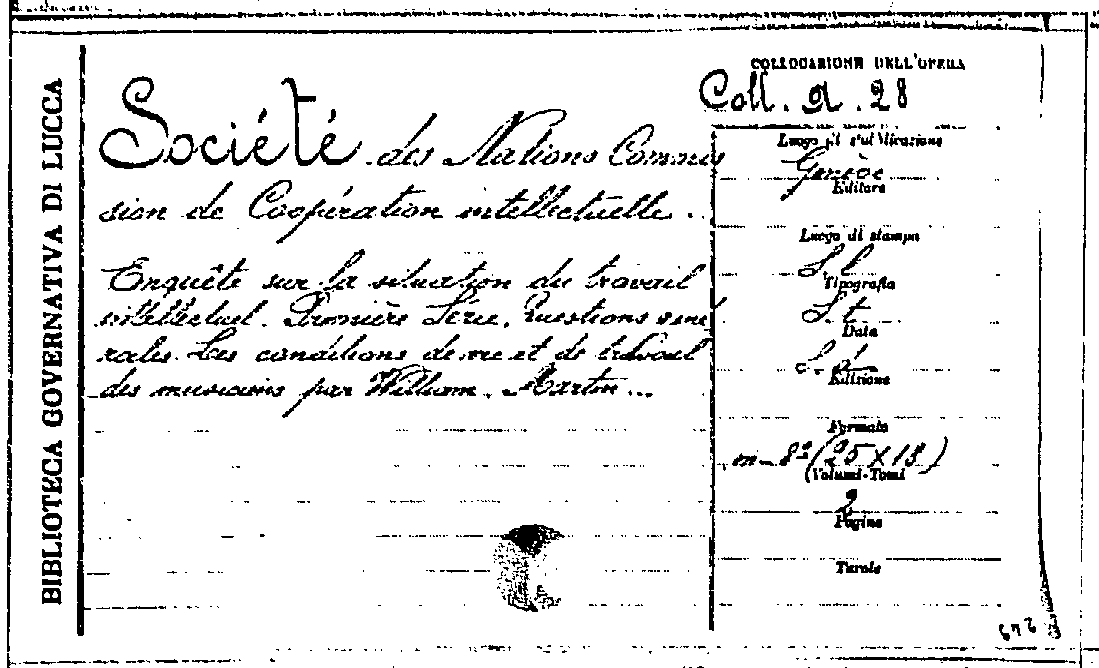 BIBLIOTECA GOVERNATIVA DI LUCCA
COLLOCAZIONE DELL'OPERA
Coll. a. 28
Société des Nations Commis
sion de Coopération intellectuelle..
Enquête sur la situation du travail
intellectuel. Première Série. Questions géné
rales. Les conditions de vie et de travail
des musiciens par William. Martin...
Luogo di pubblicazione
Genève
Editore
Luogo di stampa
S. l
Tipografia
S. t
Data
S. d
Edizione
Formato
in-8° (25 x 18)
(Volumi-Tomi
Pagine
Tavole